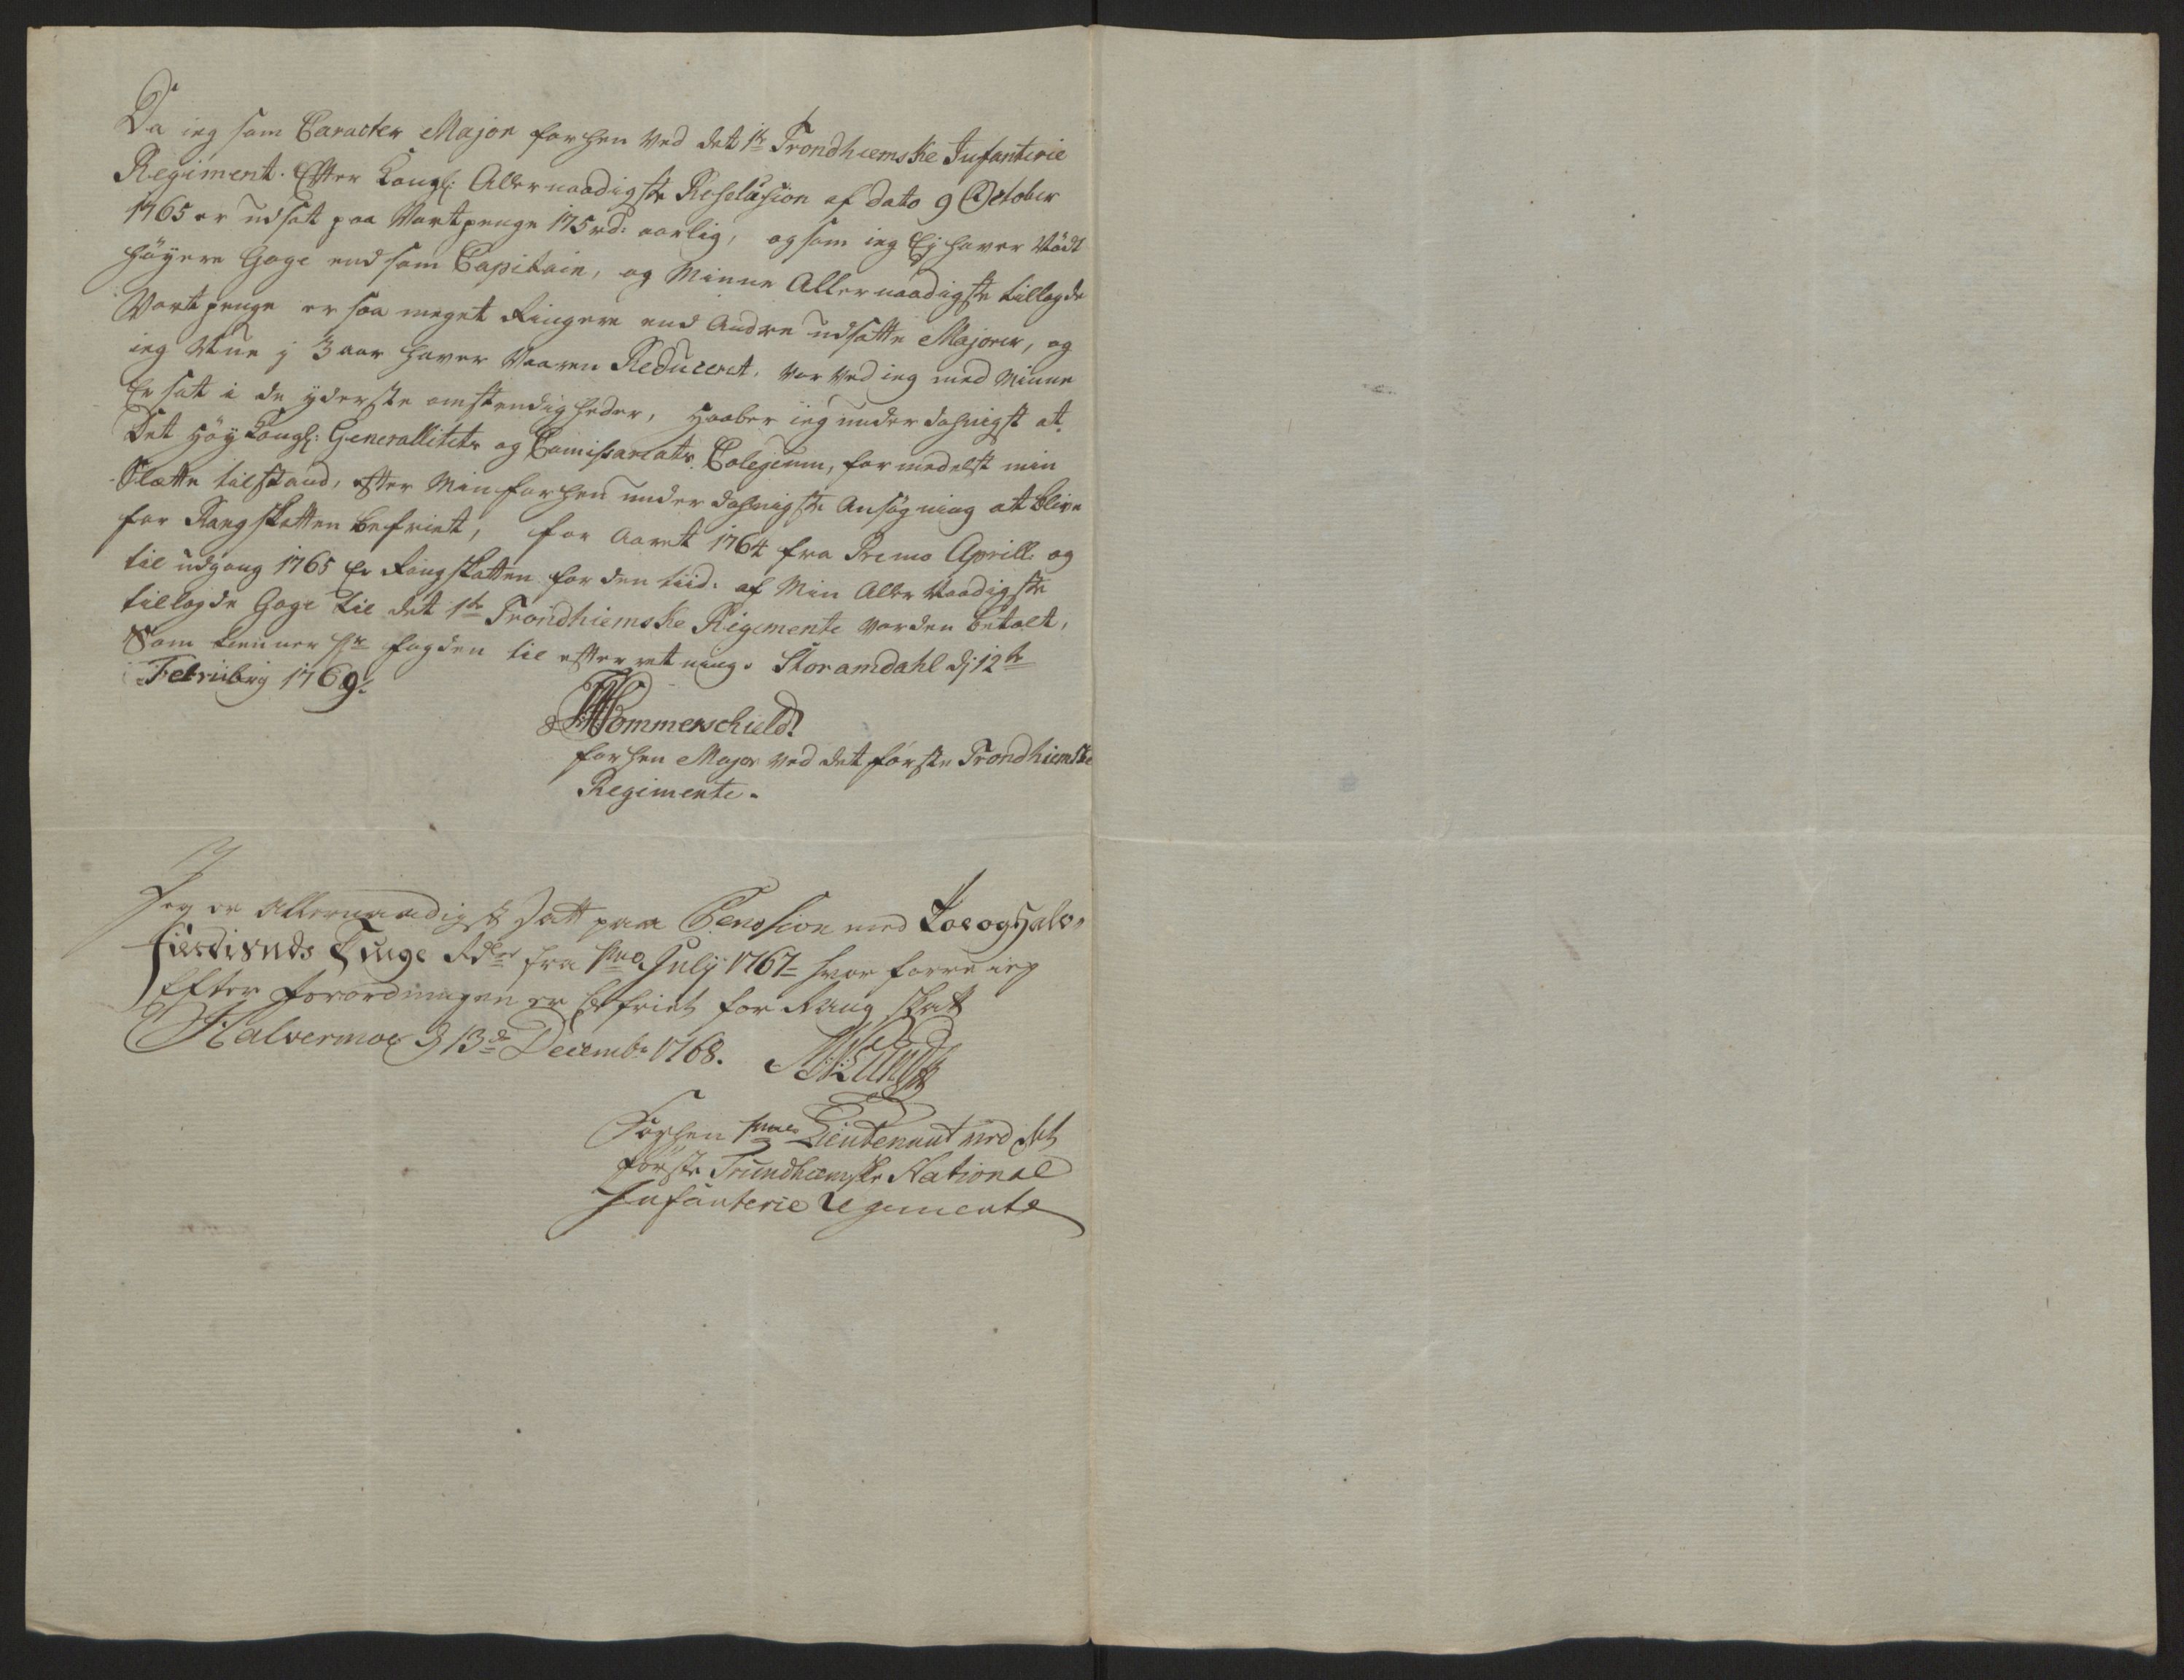 Da ieg som Caracter Major forhen ved det 1te Trondhiemske Infanterie
Regiment. Efter Kongl: Allernaadigste Resolusion af dato 9 October
1765 er udsat paa Vartpenge 175 rd: aarlig, og som ieg Ej haver Nødt
høyere Gage end som Capitain, og Minne Allernaadigste tillagde
Vartpenge er saa meget Ringere end Andre udsatte Majorer, og
ieg Nu i 3 aar haver Vaaren Reduceret, vor ved ieg med Minne
Er sat i de yderste omstendigheder, Haaber ieg underdahnigst at
Det Høy Kongl: Generallitets og Comissariats Colegium, formedelst min
Slætte tilstand, efter Min forhen underdahnigste Ansøgning at blive
for Rangskatten befriet, for Aaret 1764 fra Primo Aprill og
til udgang 1765 Er Rangskatten for den tiid: af Min Aller Naadigste
tillagde Gage til det 1te Trondhiemske Regimente vorden betalt,
Som tienner Hr fogden til efterretning. Storamdahl dj 12te
Februarij 1769.
Hommerschield
forhen Major ved det første Trondhiemske
Regimente.
Jeg er Allernaadigst Satt paa Pension med Toe og Halv-
fierdisinds Tiuge Rdlr fra 1mo July 1767 hvor forre ieg
Efter Forordningen er befriet for Rang Skatt
Halvermoe d 13de Decembr 1768.
Forhen Lieutenant ved det
første Trundhiemske National
Infanterie Regimente